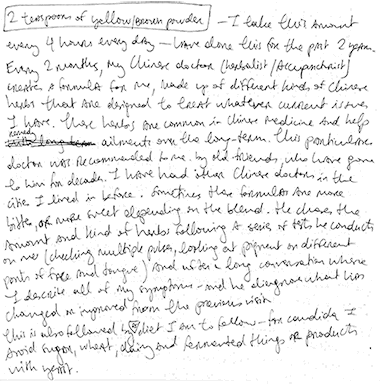 2 teaspoons of yellow/brown powder — I take this amount
every 4 hours every day — have done this for the past 2 years.
Every 2 months, my Chinese doctor (herbalist/Accupuncturist)
creates a formula for me, made up of different kinds of Chinese
herbs that are designed to treat whatever current issues
I have. These herbs are common in Chinese medicine and help
ailments over the long-term. This particular
doctor was recommended to me by old friends, who have gone
to him for decades. I have had other Chinese doctors in the
cities I lived in before. Sometimes these formulas are more
bitter, or more sweet depending on the blend. He changes the
amount and kind of herbs following a series of tests he conducts
on me (checking multiple pulses, looking at pigment on different
parts of face and tongue) and after a long conversation where
I describe all of my symptoms — and he diagnoses what has
changed or improved from the previous visit
this is also followed by diet I am to follow — for candida I
avoid sugar, wheat, dairy and fermented things or products
with yeast.